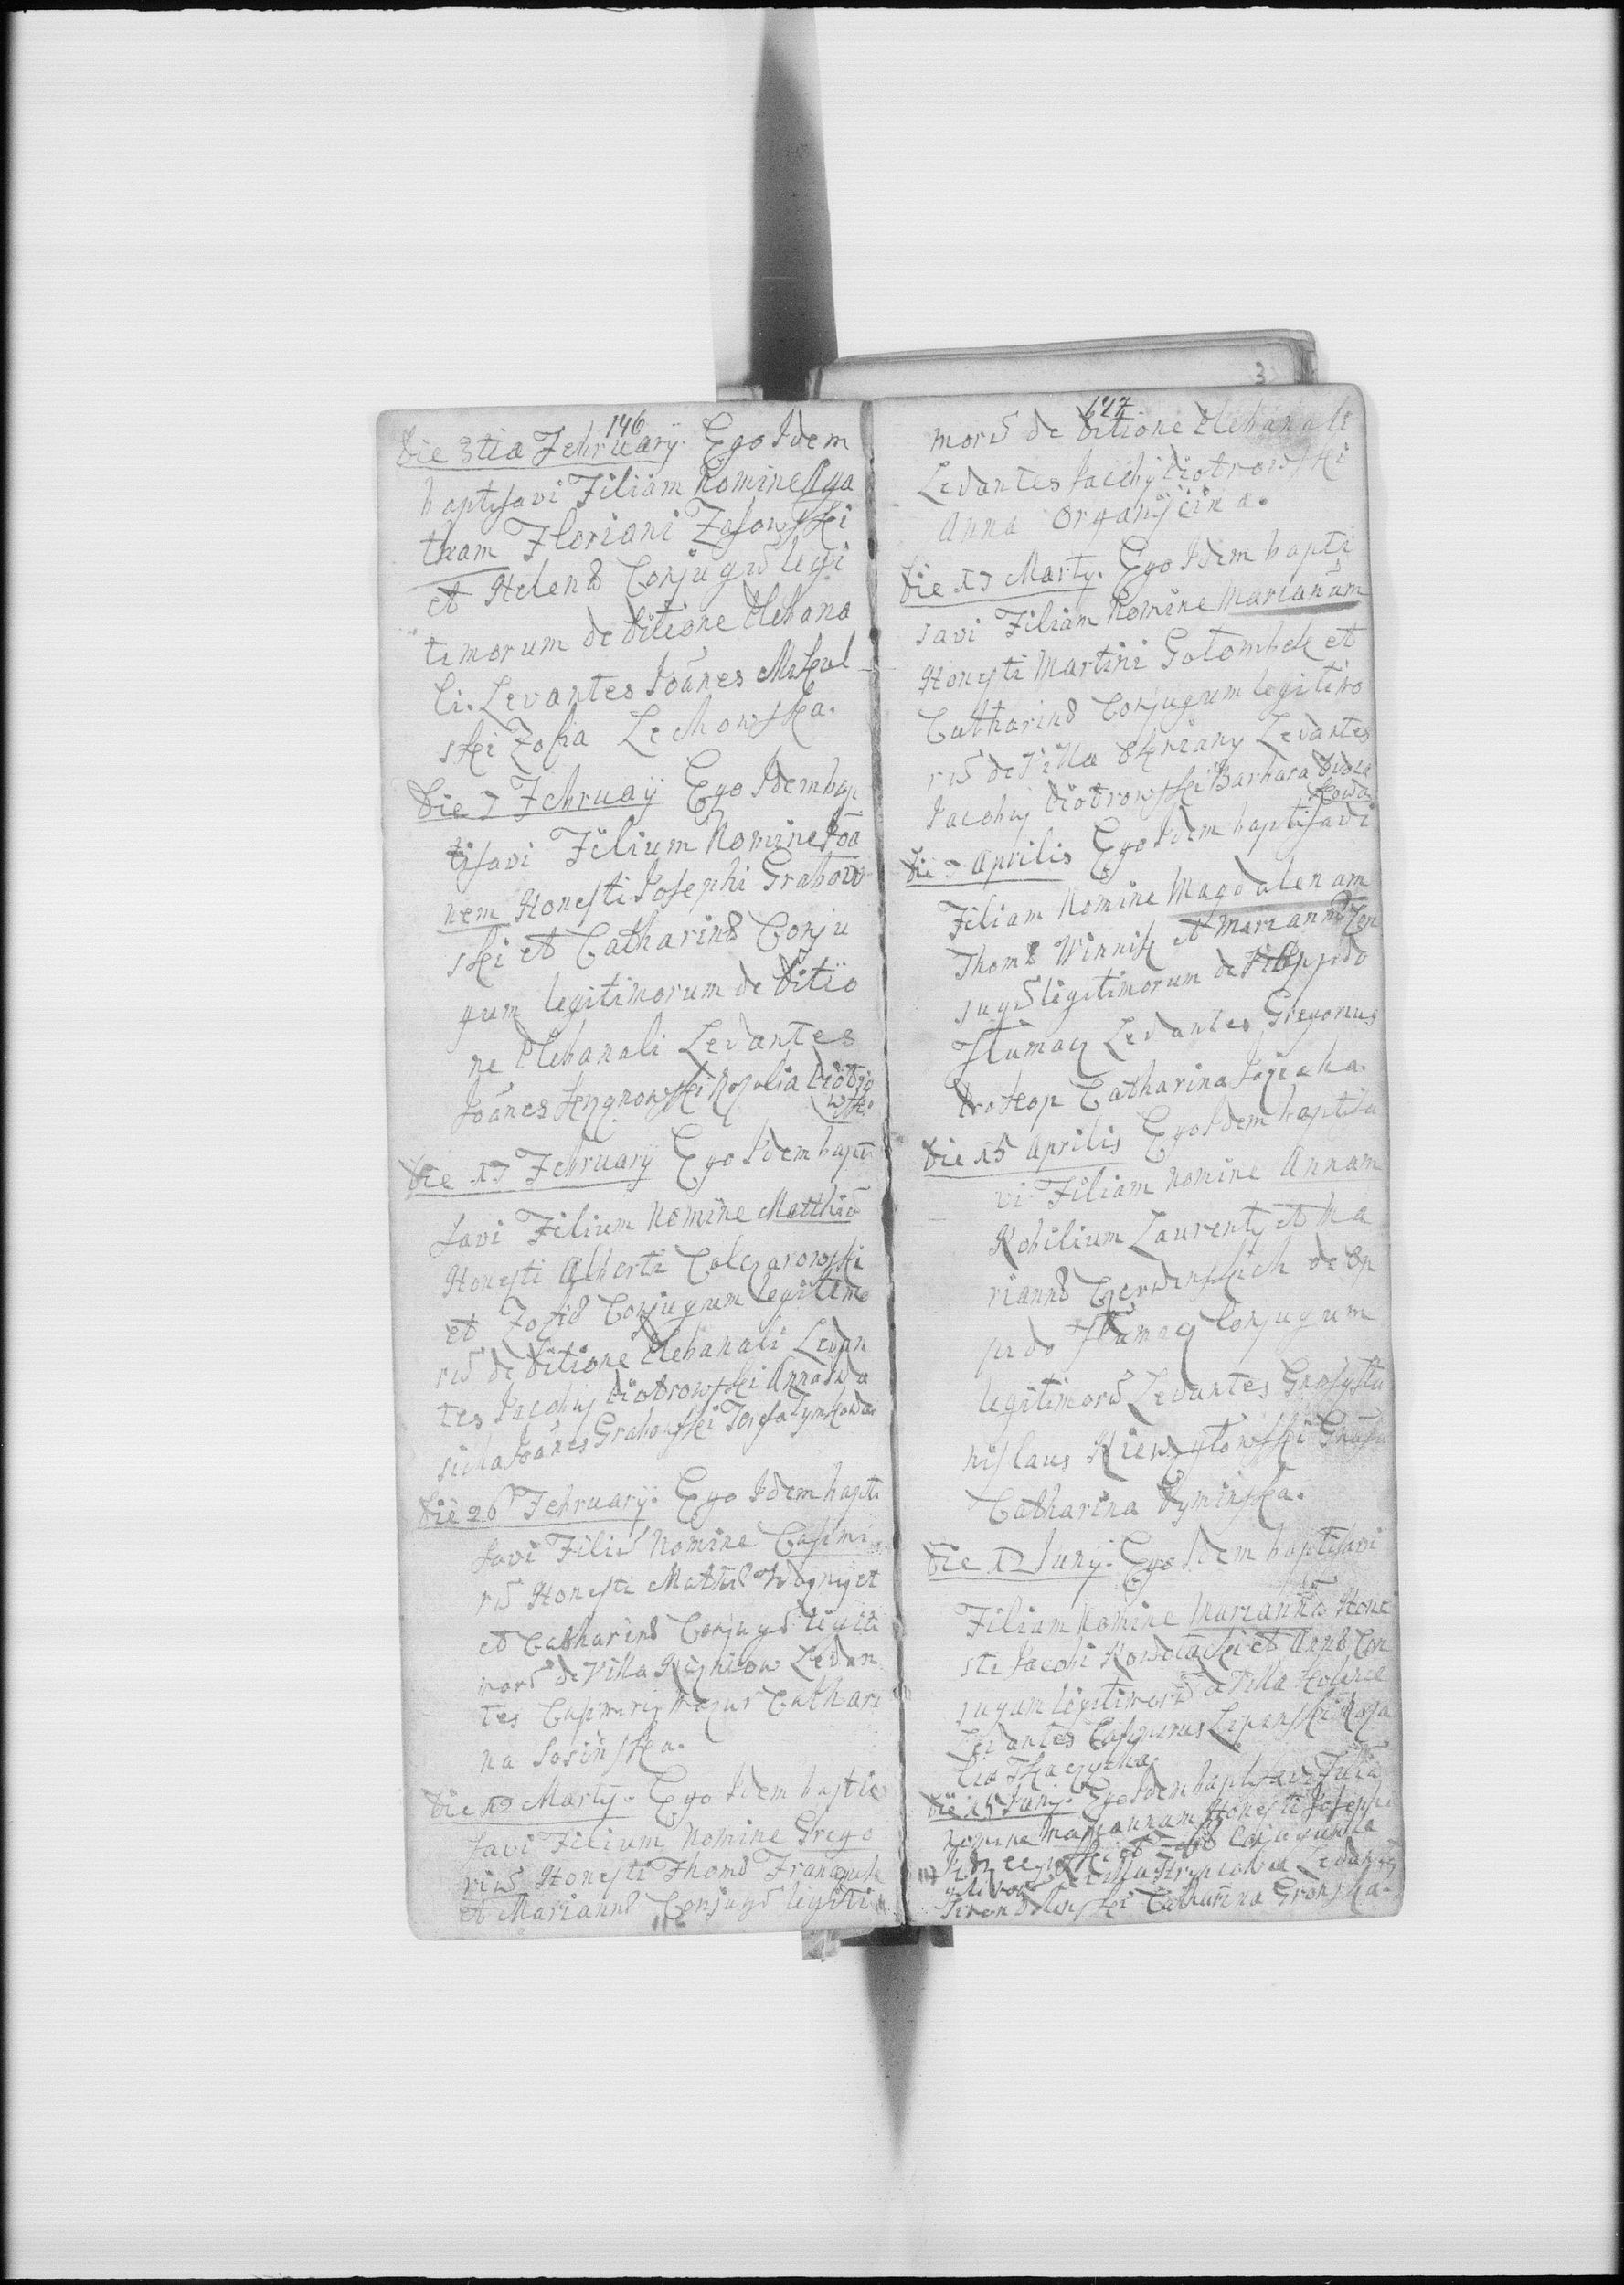 146
Die 3tia February. Ego Idem
baptisavi Filiam Nomine Aga
tham Floriani Zasowski
et Helenæ Conjugū legi
timorum de Ditione Plebana
li. Levantes Joānes Mikul
ski Zofia Lechowska.
Die 7 Februay Ego Idem bap
tisavi Filium Nomine Joā
nem Honesti Josephi Grabow
ski et Catharinæ Conju
gum legitimorum de Ditio
ne Plebanali Levantes
Joānes Rozalia Piotro
wska
Die 17 February Ego Idem bapti
savi Filium Nomine Matthiā
Honesti Alberti Calczarowski
et Zofiæ Conjugum legitimo
rū de Ditione Plebanali Levan
tes Jacobi Piotrowski Anna
Joānes Grabowski Teresa
Die 26 February. Ego Idem bapti
savi Filiū Nomine Casimi
rū Honesti Mathiæ et
et Catharinæ Conjugū legiti
morū de Villa Levan
tes Casimiri Mazur Cathari
na Sosinska.
Die 12 Marty. Ego Idem bapti
savi Filium Nomine Grego
riū Honesti Thomæ
et Mariannæ Conjugū legiti
147
morū de Ditione Plebanali
Levantes Jacobi Piotrowski
Anna Organiscina.
Die 17 Marty. Ego Idem bapti
savi Filiam Nomine Mariannam
Honesti Martini Golombek et
Catharinæ Conjugum legitimo
rū de Villa Levantes
Jacobi Piotrowski Barbara
kowa
Die 7 Aprilis Ego Idem baptisavi
Filiam Nomine Magdalenam
Thomæ Winnik et Mariannæ Con
jugū legitimorum de Oppido
Tlumacz Levantes Gregorius
Prokop Catharina
Die 15 Aprilis Ego Idem baptisa
vi Filiam Nomine Annam
Nobilium Laurenty et Ma
riannæ Czerwinskich de Op
pido Tlumacz Conjugum
legitimorū Levantes Gnosus Sta
nislaus Gnosa
Catharina Dyminska.
Die 12 Juny. Ego Idem baptisavi
Filiam Nomine Mariannā Hone
sti Jacobi et Annæ Con
jugum legitimorū de Villa
Levantes Casimirus Lipinski Roza
lia Tkaczycka.
Die 15 Juny. Ego Idem baptisavi Filiā
Nomine Mariannam Honesti Josephi
et Zofiæ Conjugum le
gitimorū de Villa Levantes
Catharina Gronska.